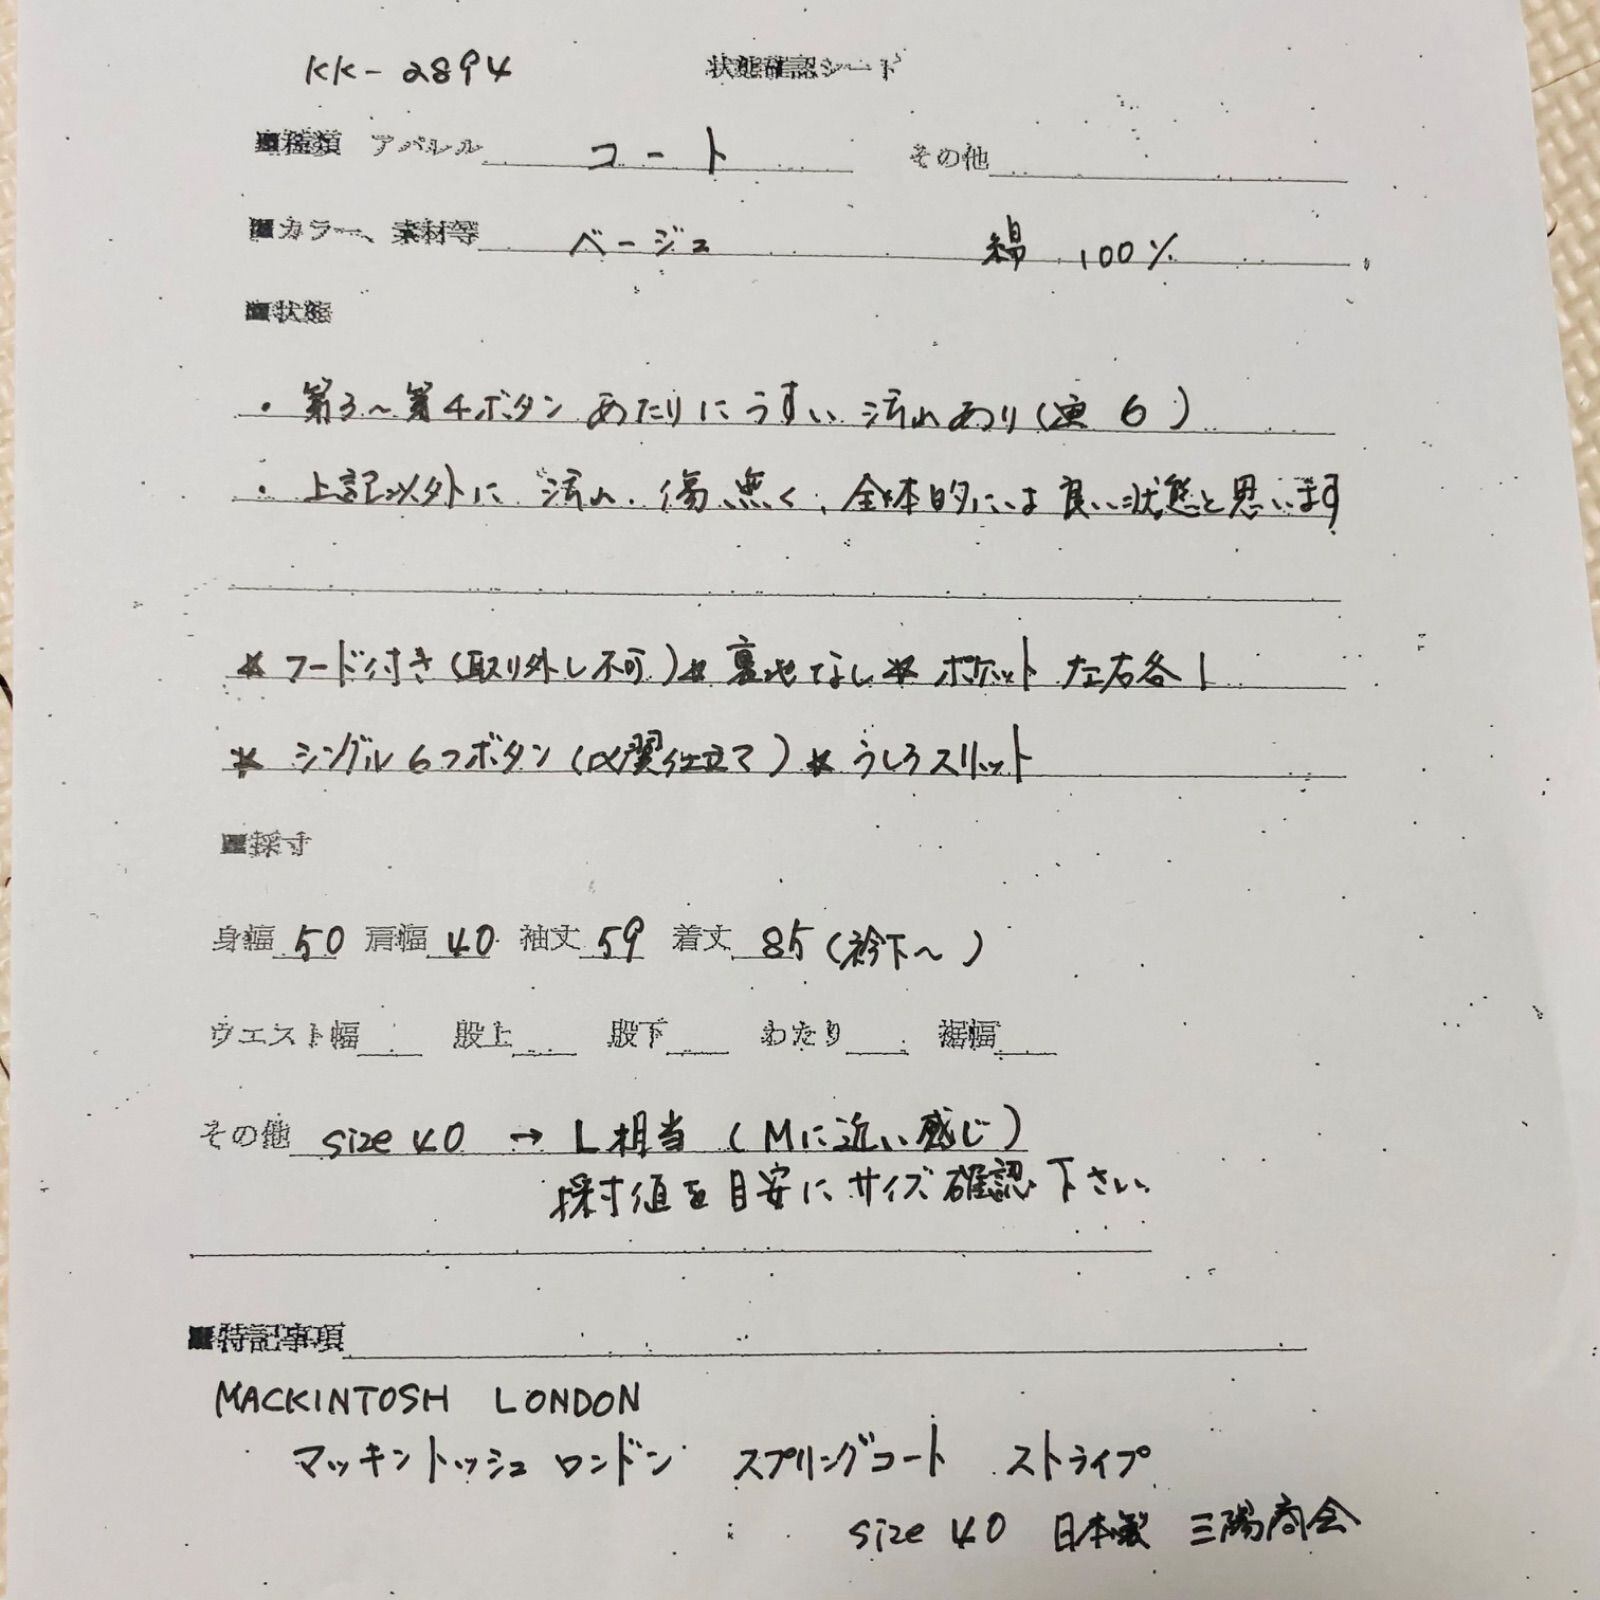 KK-2894 状態確認シート
■種類 アパレル コート その他
■カラー、素材等 ベージュ 綿 100%
■状態
・第3～第4ボタン あたりに うすい 汚れあり(画 6)
・上記以外に 汚れ・傷 無く、全体的には 良い状態と思います
* フード付き(取り外し不可) * 裏地なし * ポケット 左右各1
* シングル6つボタン(比翼仕立て) * うしろスリット
■採寸
身幅 50 肩幅 40 袖丈 59 着丈 85(衿下～)
ウエスト幅 股上 股下 わたり 裾幅
その他 size 40 → L相当 (Mに近い感じ)
採寸値を目安に サイズ確認 下さい.
■特記事項
MACKINTOSH LONDON
マッキントッシュ ロンドン スプリングコート ストライプ
size 40 日本製 三陽商会